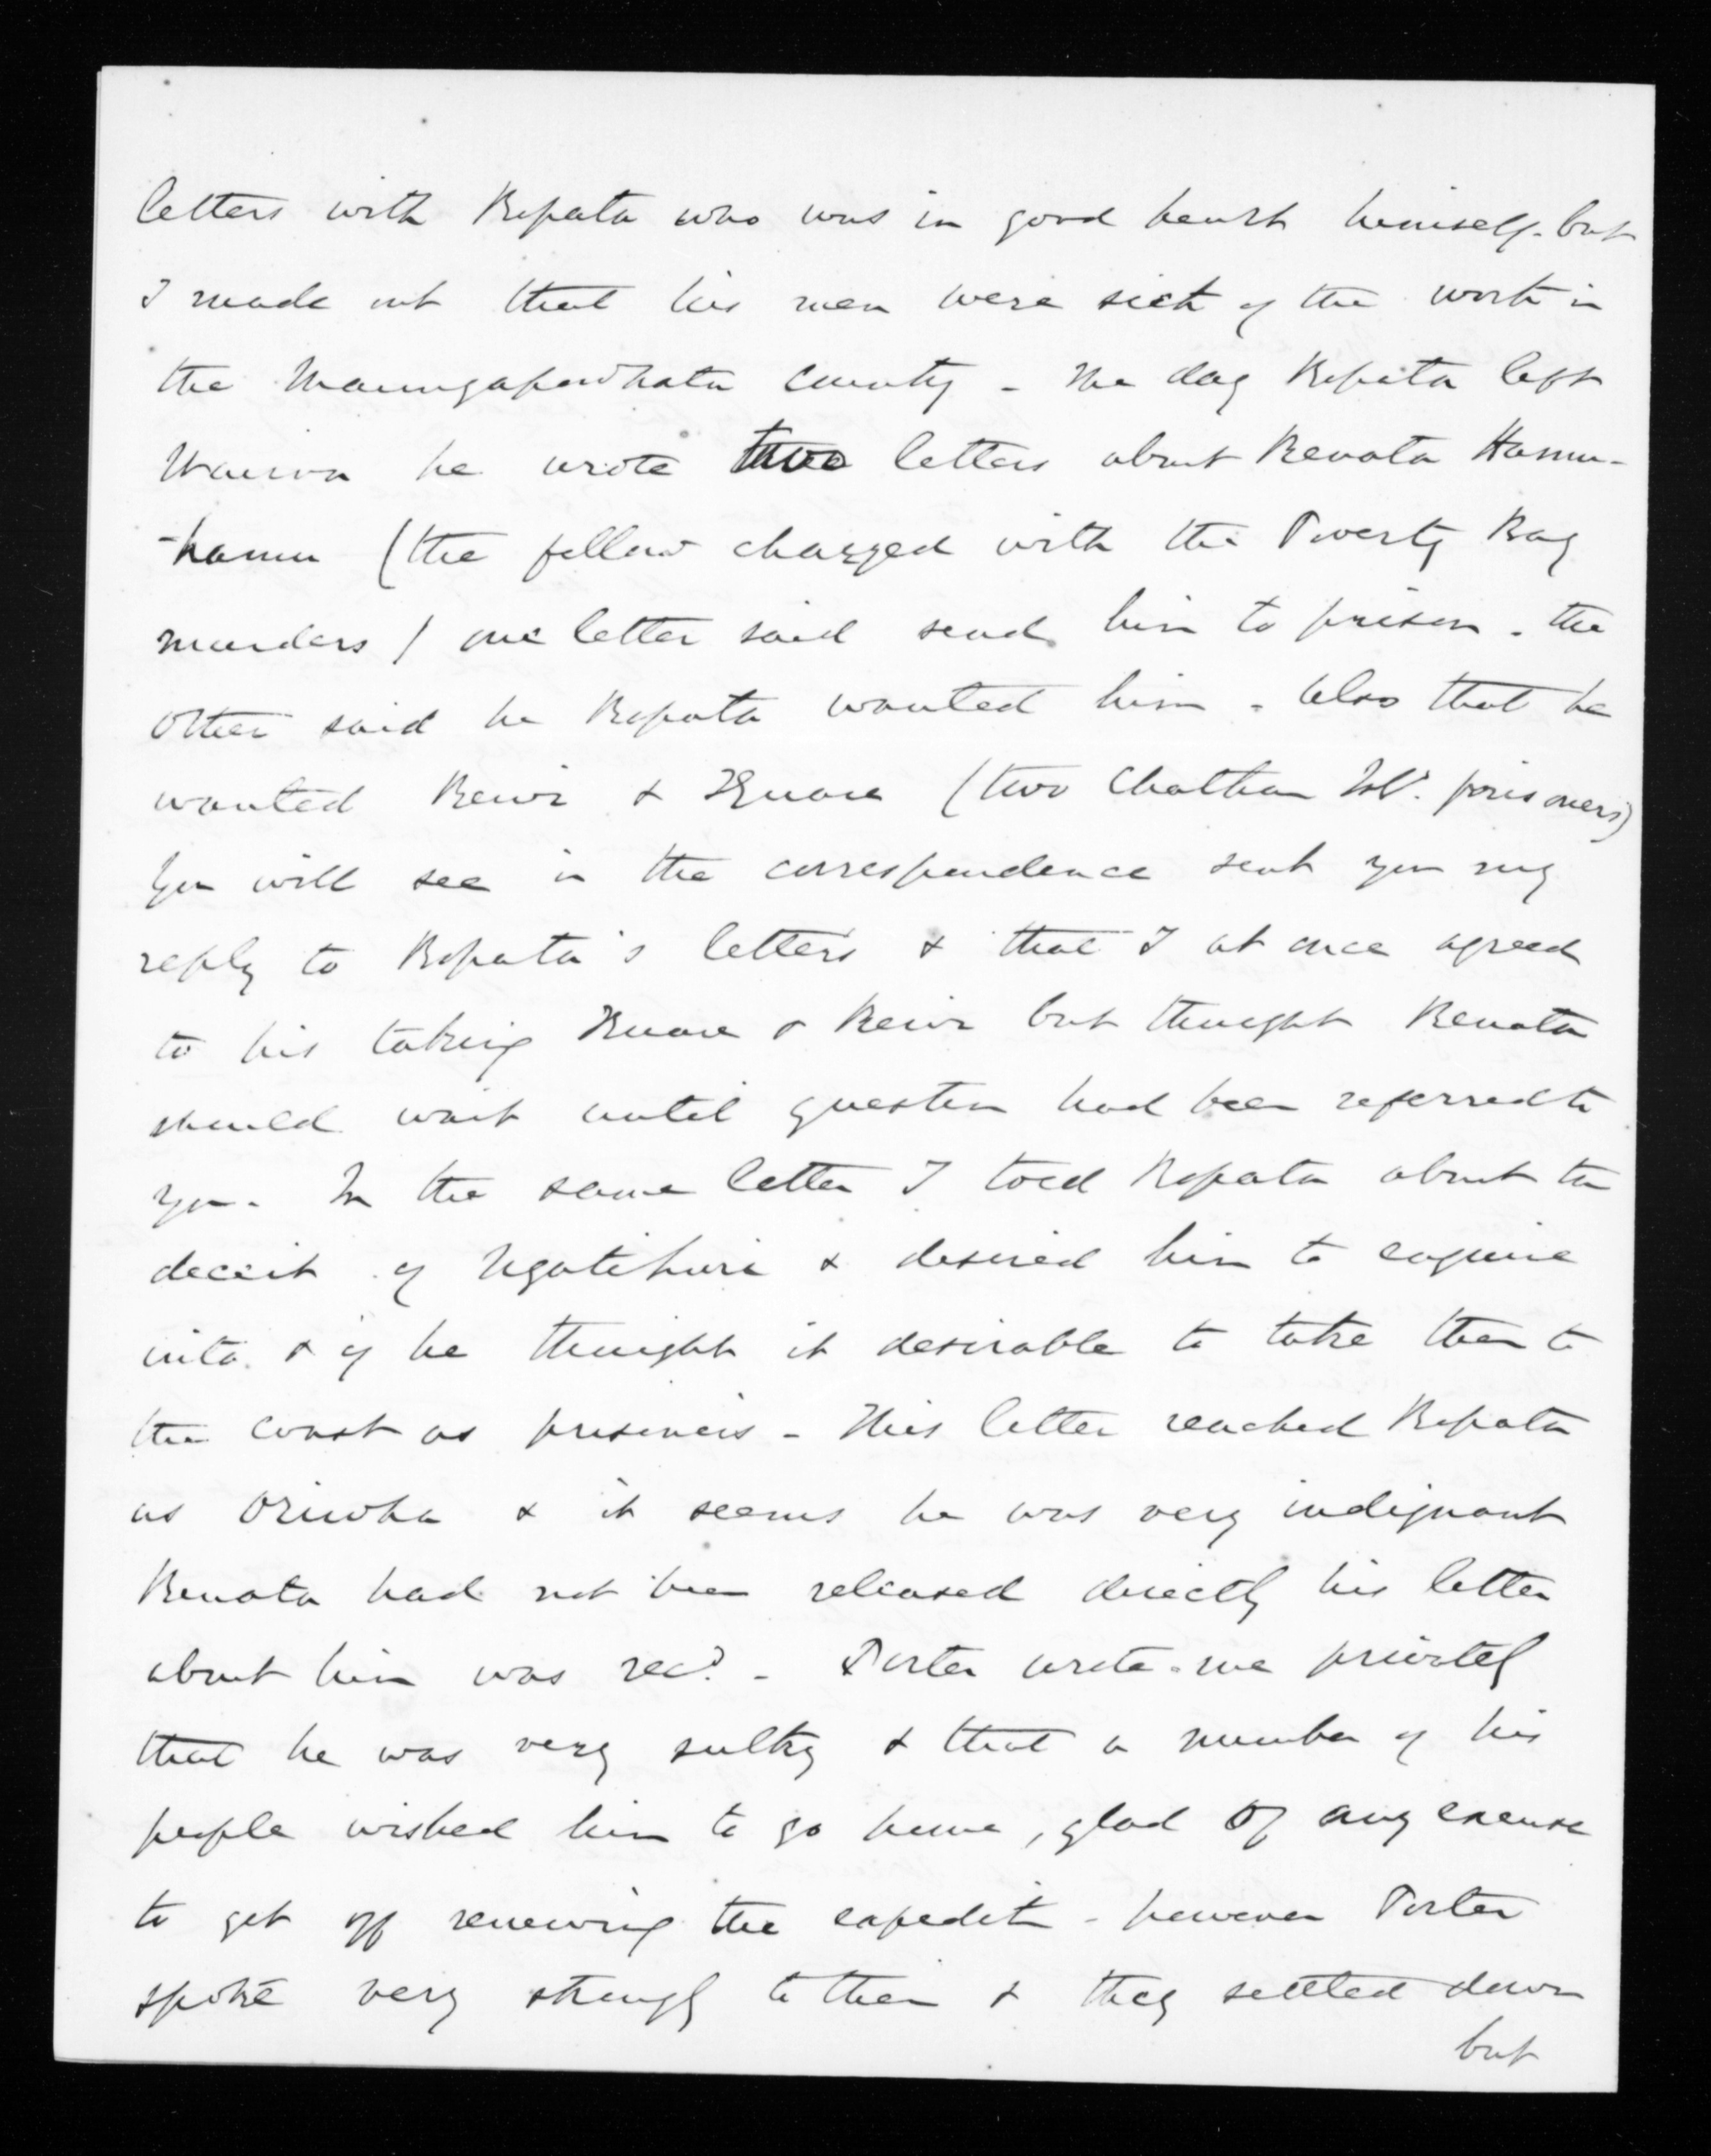 letters with Ropata who was in good heart himself - but
I made out that his men were sick of the work in
the Maungapowhatu country - The day Ropata left
Wairoa he wrote two letters about Renata Hamu-
-hamu (the fellow charged with the Poverty Bay
murders) one letter said send him to prison - the
other said he Ropata wanted him - also that he
wanted Rewi & (two Chatham Isd. prisoners)
You will see in the correspondence sent you my
reply to Ropata's letters & that I at once agreed
to his taking & Rewi but thought Renata
should wait until question had been referred to
you - In the same letter I told Ropata about the
deceit of Ngatihuri & desired him to enquire
into & if he thought it desirable to take them to
the coast as prisoners - This letter reached Ropata
as & it seems he was very indignant
Renata had not been released directly his letter
about him was recd. - Porter wrote me privately
that he was very sulky & that a number of his
people wished him to go home, glad of any excuse
to get off renewing the expeditn - however Porter
spoke very strongly to them & they settled down
but